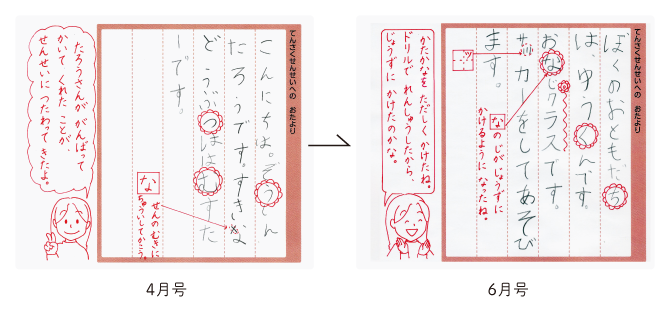 てんさくせんせいへの おたより
こんにちは。
たろうです。すきな
どうぶつははむすた
ーです。
な
せんのむきに
ちゅういしてかこう。
たろうさんが がんばって
かいて くれた ことが、
せんせいに つたわってきたよ。
4月号
てんさくせんせいへの おたより
ぼくのおともだち
は、ゆうくんです。
おなじクラスです。
サッカーをしてあそび
ます。
ッ
な のじがじょうずに
かけるように なったね。
かたかなを ただしく かけたね。
ドリルで れんしゅうしたから、
じょうずに かけたのかな。
6月号